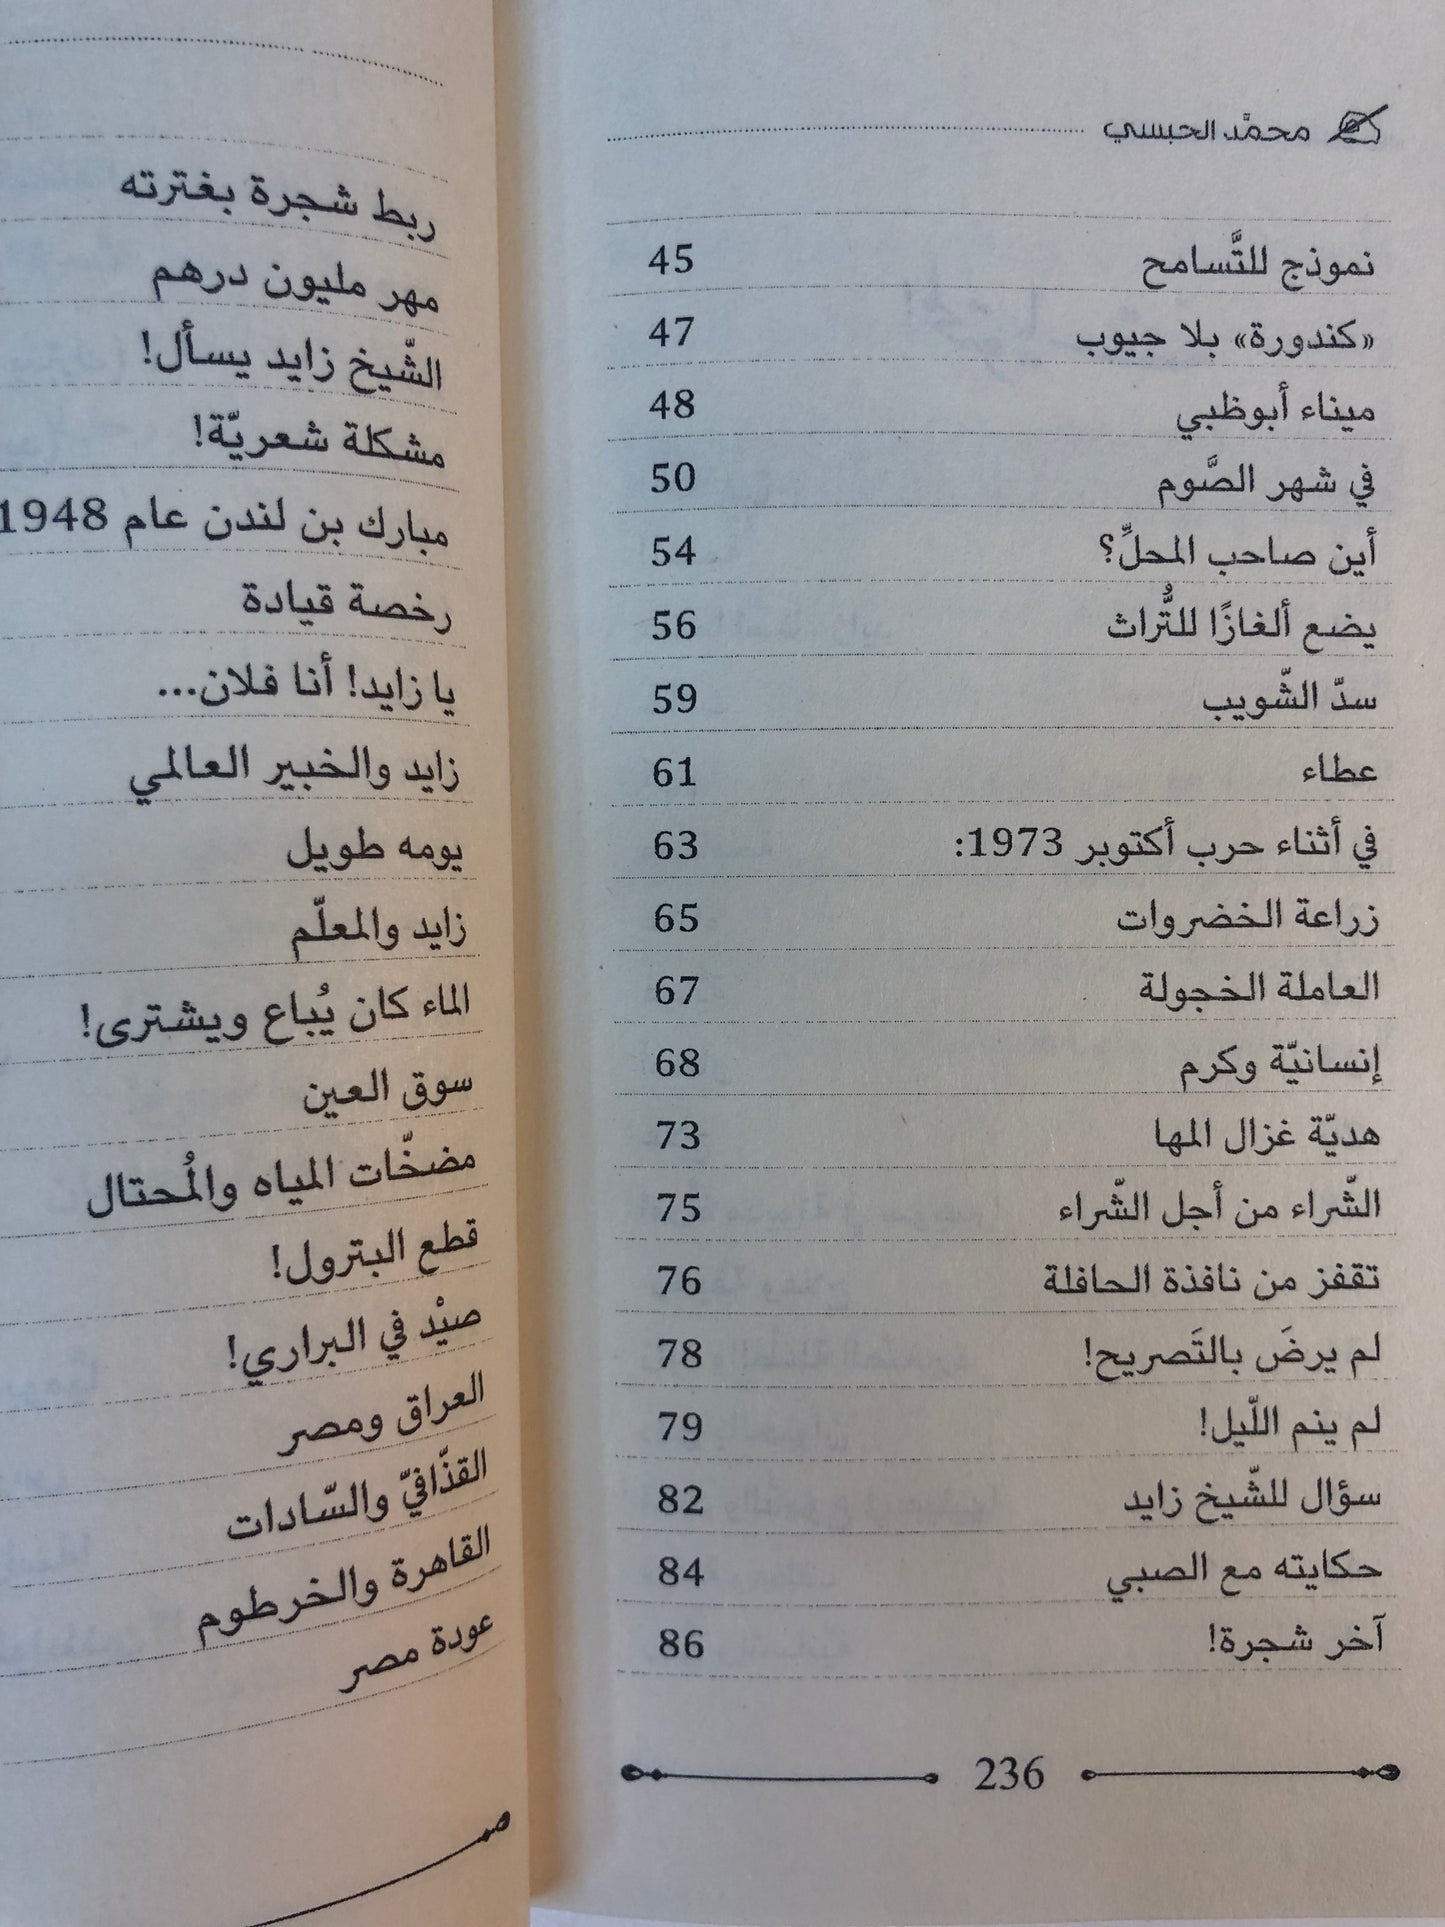 محمّد الحبسي
نموذج للتَّسامح 45
«كندورة» بلا جيوب 47
ميناء أبوظبي 48
في شهر الصَّوم 50
أين صاحب المحلِّ؟ 54
يضع ألغازًا للتُّراث 56
سدّ الشّويب 59
عطاء 61
في أثناء حرب أكتوبر 1973: 63
زراعة الخضروات 65
العاملة الخجولة 67
إنسانيّة وكرم 68
هديّة غزال المها 73
الشّراء من أجل الشّراء 75
تقفز من نافذة الحافلة 76
لم يرضَ بالتَصريح! 78
لم ينم اللّيل! 79
سؤال للشّيخ زايد 82
حكايته مع الصبي 84
آخر شجرة! 86
236
ربط شجرة بغترته
مهر مليون درهم
الشّيخ زايد يسأل!
مشكلة شعريّة!
مبارك بن لندن عام 1948
رخصة قيادة
يا زايد! أنا فلان...
زايد والخبير العالمي
يومه طويل
زايد والمعلّم
الماء كان يُباع ويشترى!
سوق العين
مضخّات المياه والمُحتال
قطع البترول!
صيْد في البراري!
العراق ومصر
القذّافيّ والسّادات
القاهرة والخرطوم
عودة مصر